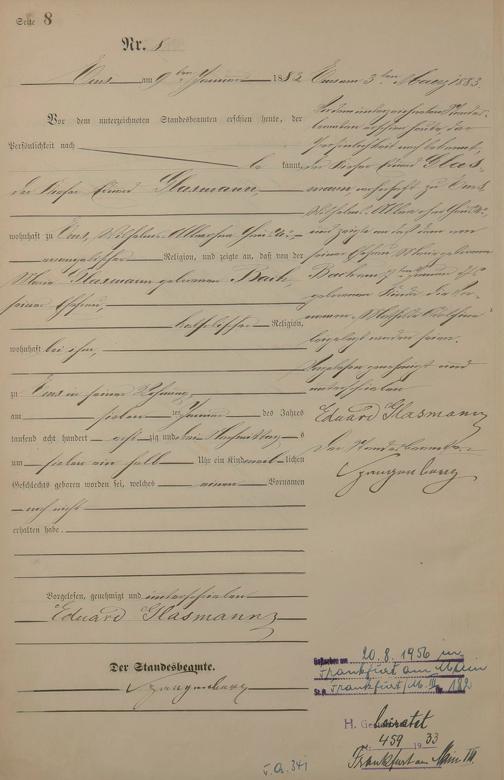 Seite 8
Nr. 8
Ems am 9 ten Januar 1882
Vor dem unterzeichneten Standesbeamten erschien heute, der
Persönlichkeit nach
be kannt,
der Eduard Glasmann,
wohnhaft zu Ems, Wilhelms-Allee
evangelischer Religion, und zeigte an, daß von der
Maria Glasmann geborenen Bach
seiner Ehefrau,
katholischer Religion,
wohnhaft bei ihm,
zu Ems in seiner Wohnung
am sieben ten Januar des Jahres
tausend acht hundert acht zig und
um sieben ein halb Uhr ein Kind weib lichen
Geschlechts geboren worden sei, welches einen Vornamen
noch nicht
erhalten habe.
Vorgelesen, genehmigt und unterschrieben
Eduard Glasmann
Der Standesbeamte.
Spangenberg
Ems am 3 ten März 1883.
Vor dem unterzeichneten Standes-
beamten erschien heute, der
Persönlichkeit nach bekannt,
der Eduard Glas-
mann wohnhaft zu Ems
Wilhelms-Allee
und zeigte an, daß dem von
seiner Ehefrau Maria geborenen
Bach am 7 ten Januar
geborenen Kinde die Vor-
namen Mathilde
beigelegt worden seien.
Vorgelesen genehmigt und
unterschrieben
Eduard Glasmann
Der Standesbeamte.
Spangenberg
Gestorben am 20.8.1956 in
Frankfurt am Main
St.A. Frankfurt/M. III Nr. 182
H. Geheiratet
459 1933
Frankfurt am Main III.
v. a. 341